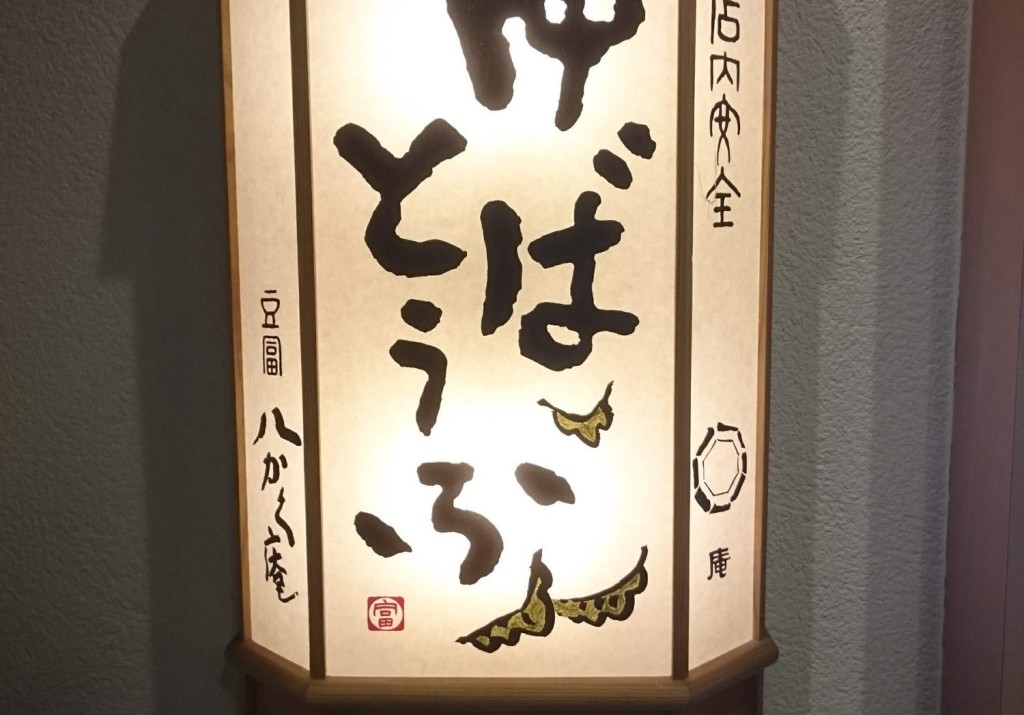 店内安全
庵
ゆば
とうふ
富
豆冨
八かく庵